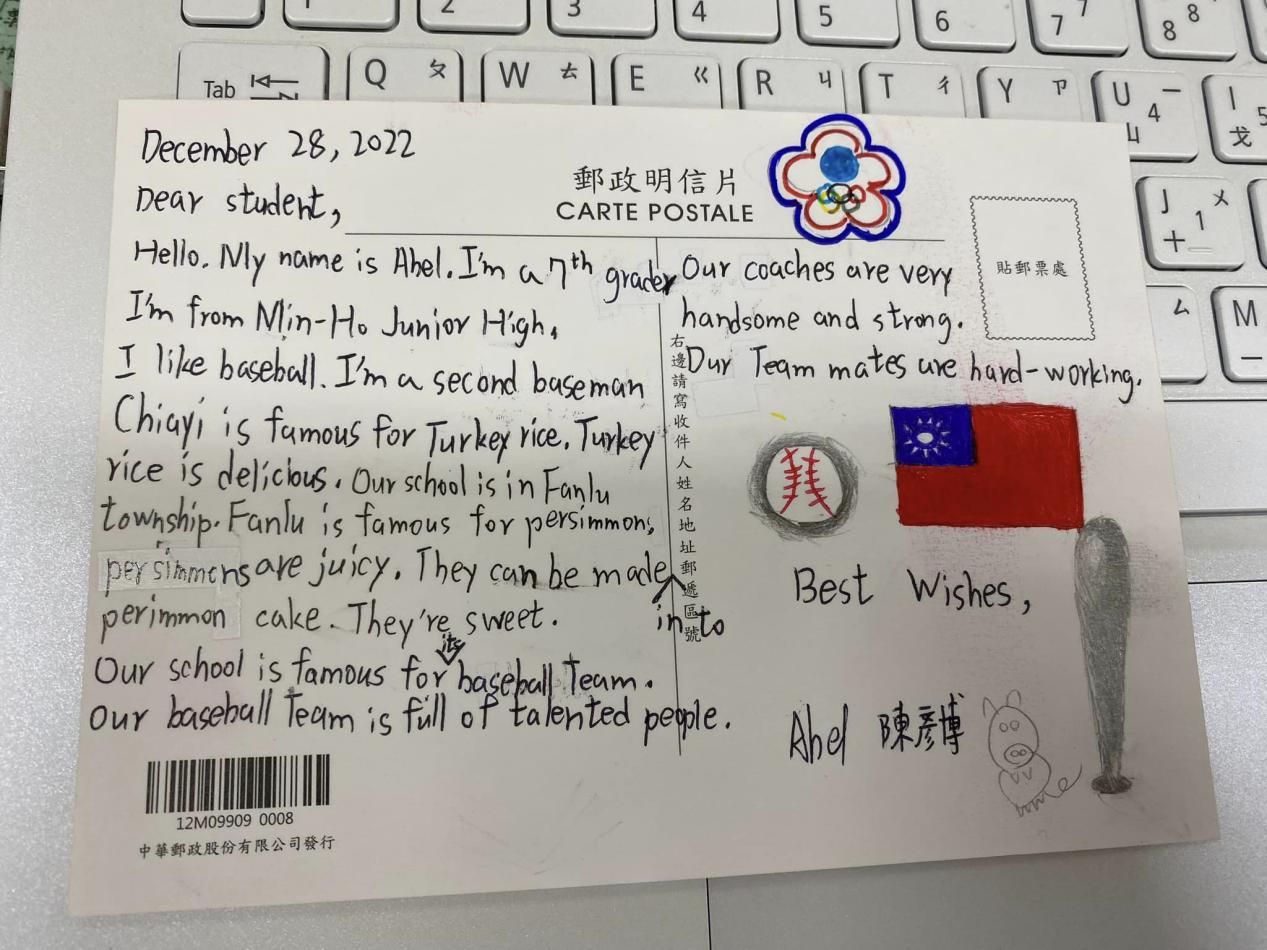 2
3
4
5
6
7 7
8 8
Tab
Q ㄆ
W ㄊ
E ㄍ
R ㄐ
T ㄔ
Y ㄗ
U ㄧ 4 山
I 5 戈
J ㄨ 1 十
ㄙ
M
December 28, 2022
Dear student,
郵政明信片
CARTE POSTALE
貼郵票處
Hello. My name is Abel. I'm a 7th grader
I'm from Min-Ho Junior High.
I like baseball. I'm a second baseman
Chiayi is famous for Turkey rice. Turkey
rice is delicious. Our school is in Fanlu
township. Fanlu is famous for persimmons,
persimmons are juicy. They can be made
in to
perimmon cake. They're sweet.
its
Our school is famous for baseball Team.
Our baseball Team is full of talented people.
右邊請寫收件人姓名地址郵遞區號
Our coaches are very
handsome and strong.
Our Team mates are hard-working.
Best Wishes,
Abel 陳彥博
12M09909 0008
中華郵政股份有限公司發行